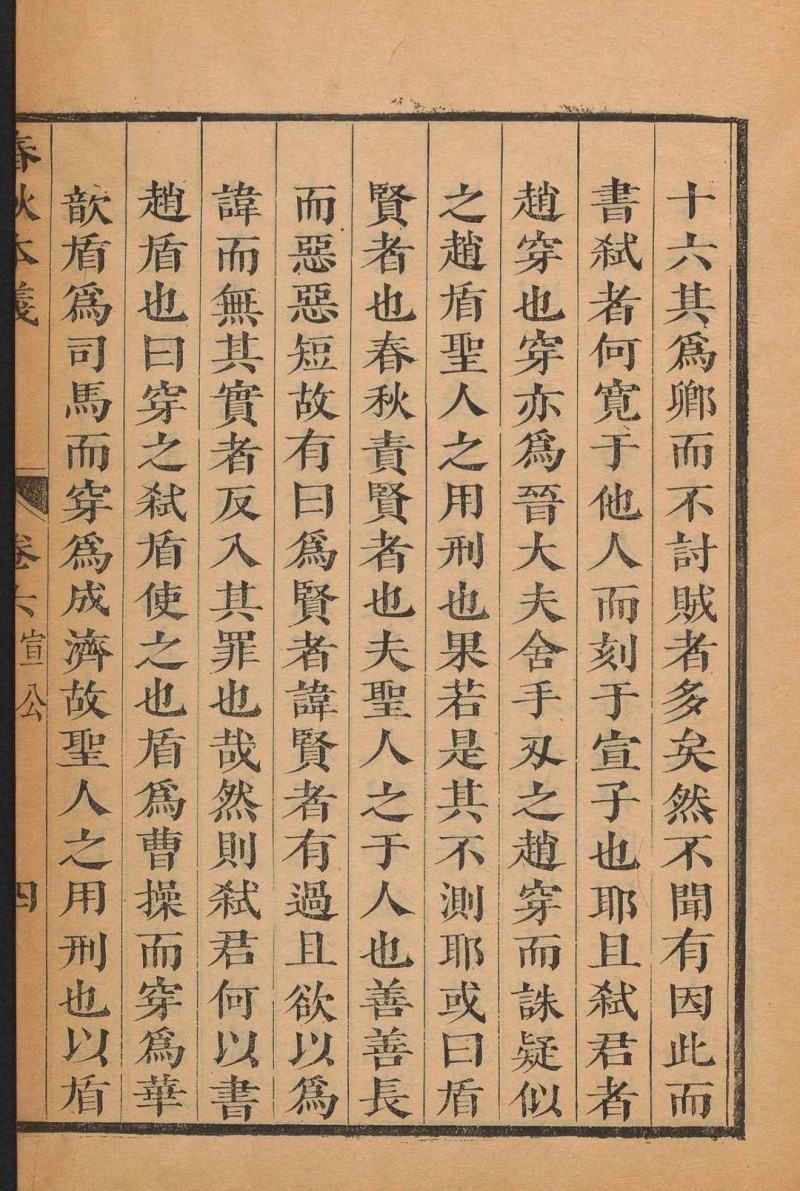 十六其爲卿而不討賊者多矣然不聞有因此而
書弒者何寛于他人而刻于宣子也耶且弒君者
趙穿也穿亦爲晉大夫舍手刄之趙穿而誅疑似
之趙盾聖人之用刑也果若是其不測耶或曰盾
賢者也春秋責賢者也夫聖人之于人也善善長
而惡惡短故有曰爲賢者諱賢者有過且欲以爲
諱而無其實者反入其罪也哉然則弒君何以書
趙盾也曰穿之弒盾使之也盾爲曹操而穿爲華
歆盾爲司馬而穿爲成濟故聖人之用刑也以盾
春秋本義 卷六宣公 四